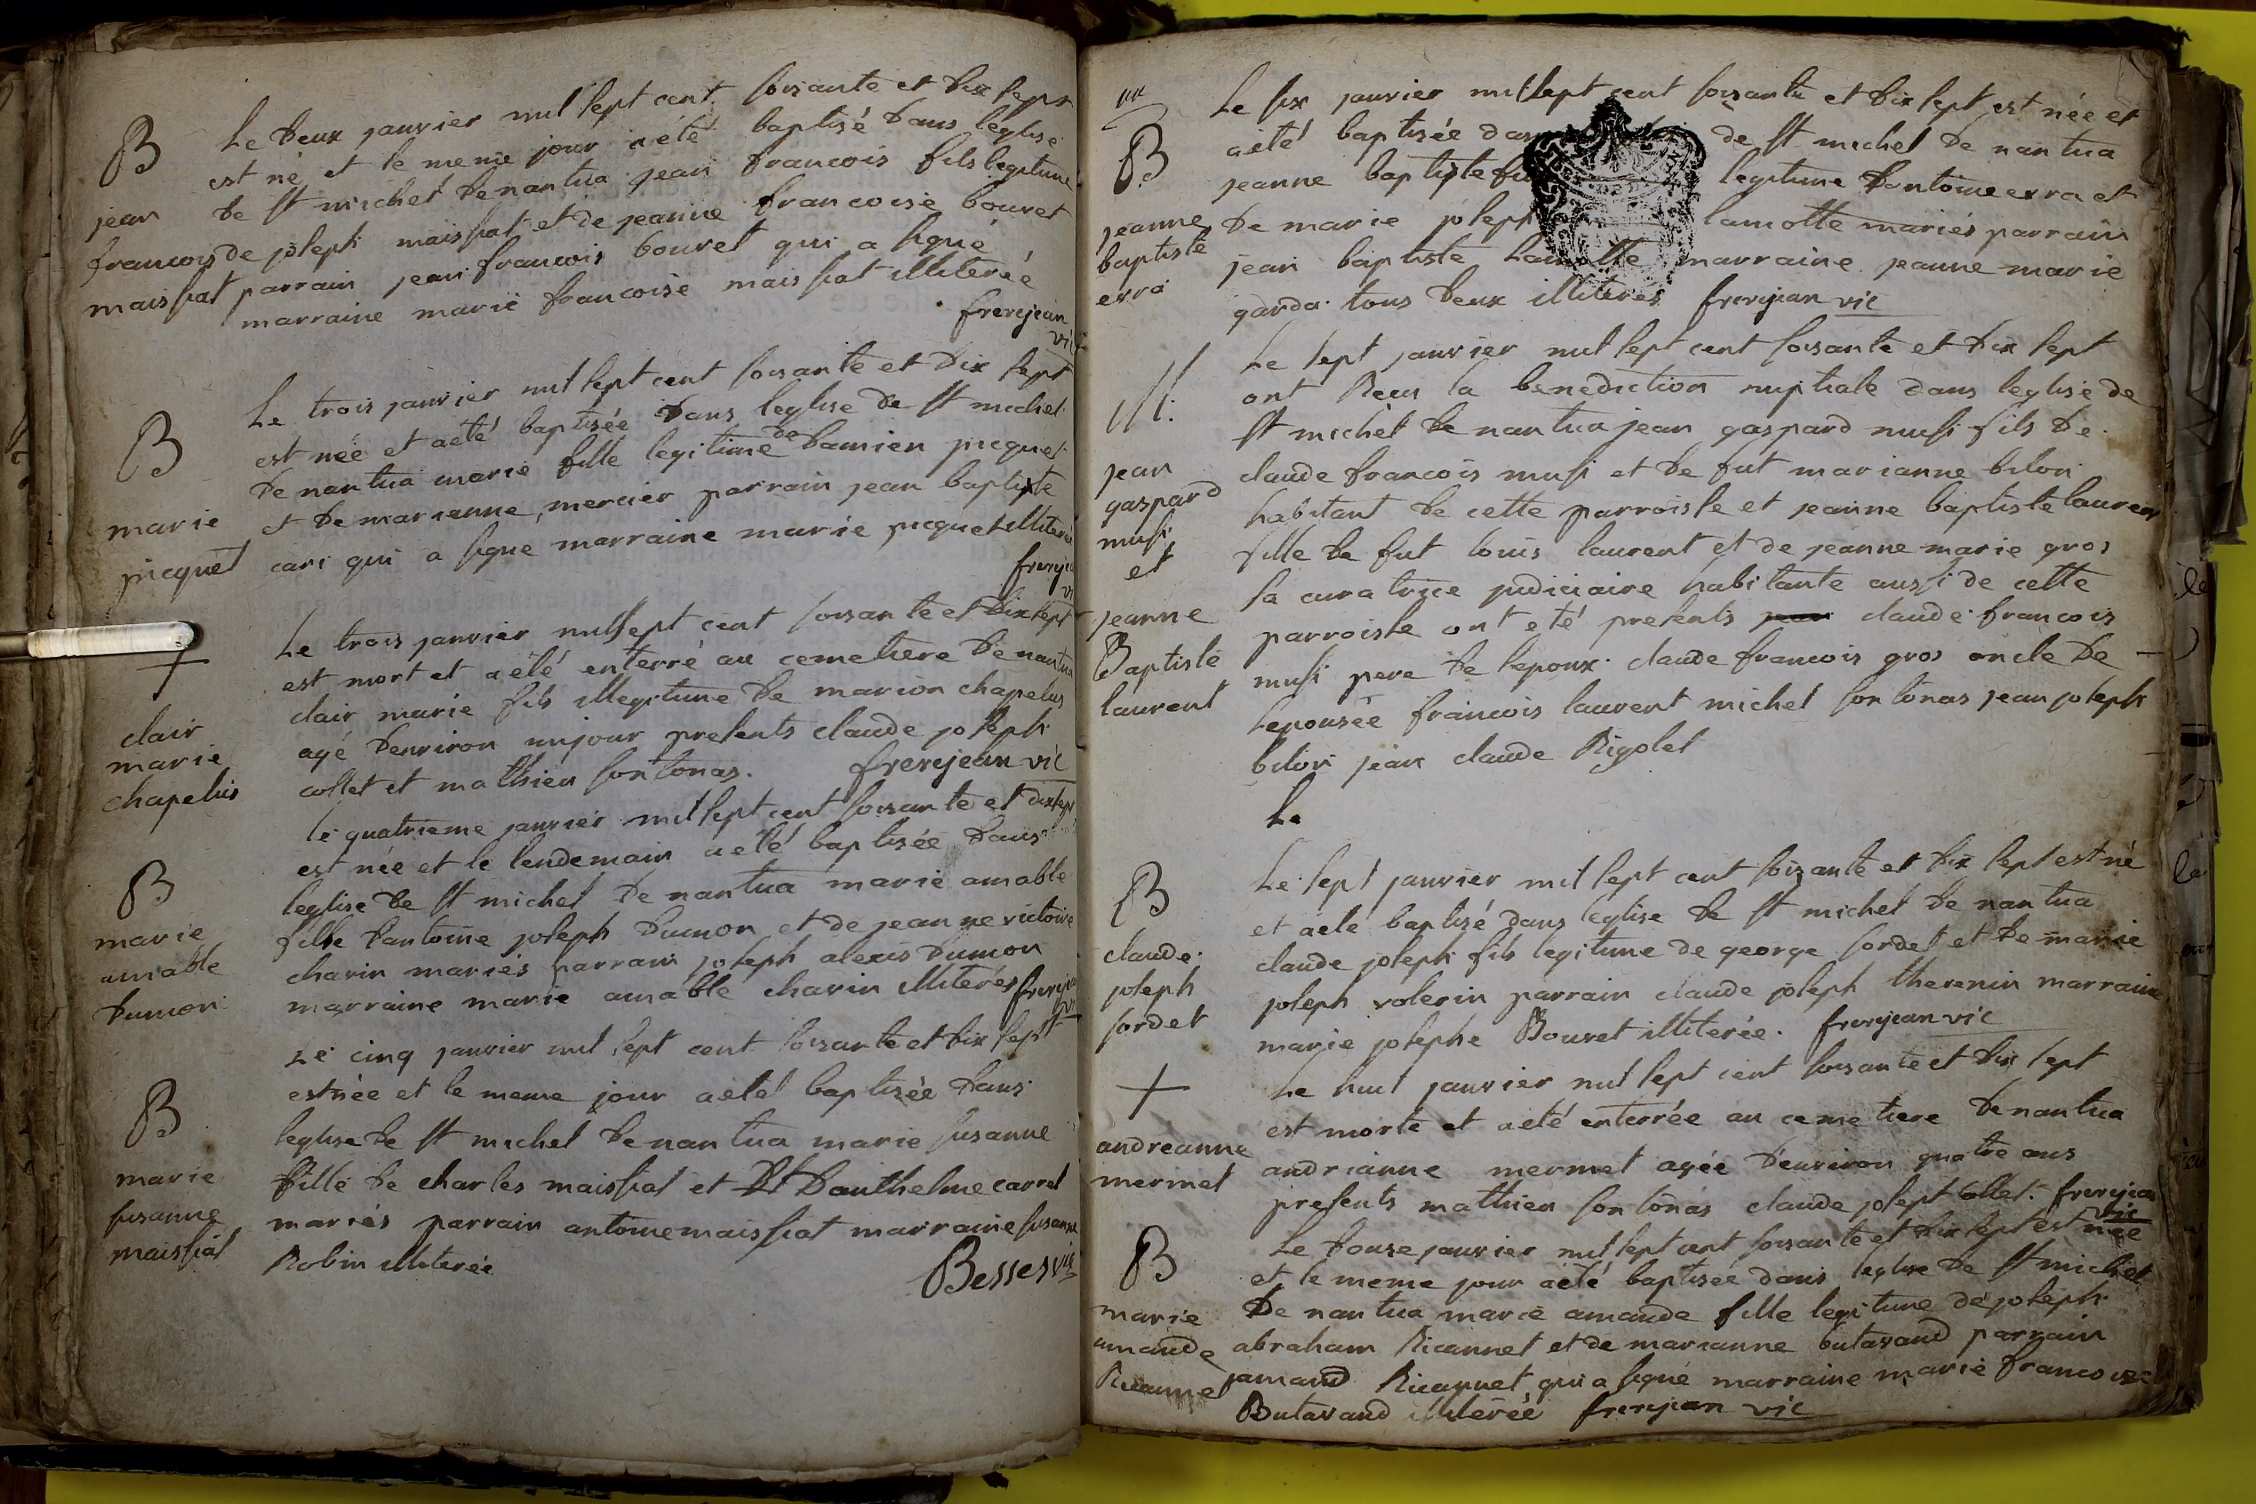 B
jean
francois
maissiat
Le deux janvier mil sept cent soisante et dix sept
est né et le meme jour aété baptisé dans leglise
de st michel de nantua jean francois fils legitime
de joseph maissiat et de jeanne francoise bouvet
parrain jean francois bouvet qui a signé
marraine marie francoise maissiat illiterée
frerejean
vic
B
marie
picquet
Le trois janvier mil sept cent soisante et dix sept
est née et aété baptisée dans leglise de st michel
de nantua marie fille legitime de damien picquet
et de marianne mercier parrain jean baptiste
cari qui a signe marraine marie picquet illiterée
+
clair
marie
chapelus
Le trois janvier mil sept cent soisante et dix sept
est mort et aété enterré au cemetiere de nantua
clair marie fils illegitime de marion chapelus
agé denviron un jour presents claude joseph
collet et mathieu sontonas. frerejean vic
B
marie
amable
dumon
le quatrieme janvier mil sept cent soisante et dix sept
est née et le lendemain aété baptisée dans
leglise de st michel de nantua marie amable
fille dantoine joseph dumon et de jeanne victoire
charin mariés parrain joseph alexis dumon
marraine marie amable charin illiterés
B
marie
susanne
maissiat
Le cinq janvier mil sept cent soisante et dix sept
est née et le meme jour aété baptisée dans
leglise de st michel de nantua marie susanne
fille de charles maissiat et Danthelme carrel
mariés parrain antoine maissiat marraine susanne
Robin illiterée
Besses vic
B
jeanne
baptiste
erra
Le six janvier mil sept cent soisante et dix sept est née et
aété baptisée de st michel de nantua
jeanne baptiste legitime dantoine erra et
de marie joseph lamotte mariés parrain
jean baptiste lamotte marraine jeanne marie
garda tous deux illiteres frerejean vic
M.
jean
gaspard
musi
et
jeanne
Baptiste
laurent
Le sept janvier mil sept cent soisante et dix sept
ont Recu la benediction nuptiale dans leglise de
st michel de nantua jean gaspard musi fils de
claude francois musi et de fut marianne bilon
habitant de cette parroisse et jeanne baptiste laurent
fille de fut louis laurent et de jeanne marie gros
sa curatrice judiciaire habitante aussi de cette
parroisse ont eté presents claude francois
musi pere de lepoux claude francois gros oncle de
lepousée francois laurent michel sontonas jean joseph
bilon jean claude Rigolet
Le
B
claude
joseph
sordet
Le sept janvier mil sept cent soisante et dix sept est né
et aété baptisé dans leglise de st michel de nantua
claude joseph fils legitime de george sordet et de marie
joseph volerin parrain claude joseph thevenin marraine
marie josephe Bouvet illiterée. frerejean vic
+
andreanne
mermet
Le huit janvier mil sept cent soisante et dix sept
est morte et aété enterrée au cemetiere de nantua
andrianne mermet agée denviron quatre ans
presents mathieu sontonas claude josept collet. frerejean
vic
B
marie
amande
Ricannet
Le douse janvier mil sept cent soisante et dix sept est née
et le meme jour aété baptisée dans leglise de st michel
de nantua marie amande fille legitime de joseph
abraham Ricannet et de marianne butavand parrain
jamand Ricannet qui a signé marraine marie francoise
Butavand illiterée frerejean vic